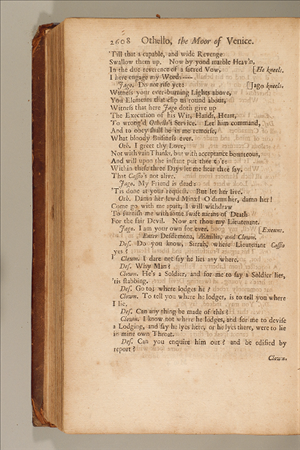 2608 Othello, the Moor of Venice.
'Till that a capable, and wide Revenge
Swallow them up. Now by yond marble Heav'n,
In the due reverence of a sacred Vow, [He kneels.
I here engage my Words——
Jago. Do not rise yet: [Jago kneels.
Witness you ever-burning Lights above,
You Elements that clip us round about,
Witness that here Jago doth give up
The Execution of his Wit, Hands, Heart,
To wrong'd Othello's Service. Let him command,
And to obey shall be in me remorse,
What bloody Business ever.
Oth. I greet thy Love,
Not with vain Thanks, but with acceptance bounteous,
And will upon the instant put thee to't
Within these three Days let me hear thee say,
That Cassio's not alive.
Jago. My Friend is dead:
'Tis done at your request. But let her live.
Oth. Damn her lewd Minx! O damn her, damn her!
Come go with me apart, I will withdraw
To furnish me with some swift means of Death
For the fair Devil. Now art thou my Lieutenant.
Jago. I am your own for ever. [Exeunt.
Enter Desdemona, Æmilia, and Clown.
Des. Do you know, Sirrah, where Lieutenant Cassio
lyes?
Clown. I dare not say he lies any where.
Des. Why Man?
Clown. He's a Soldier, and for me to say a Soldier lies,
'tis stabbing.
Des. Go to; where lodges he?
Clown. To tell you where he lodges, is to tell you where
I lie.
Des. Can any thing be made of this?
Clown. I know not where he lodges, and for me to devise
a Lodging, and say he lyes here, or he lyes there, were to lie
in mine own Throat.
Des. Can you enquire him out? and be edified by
report?
Clown.